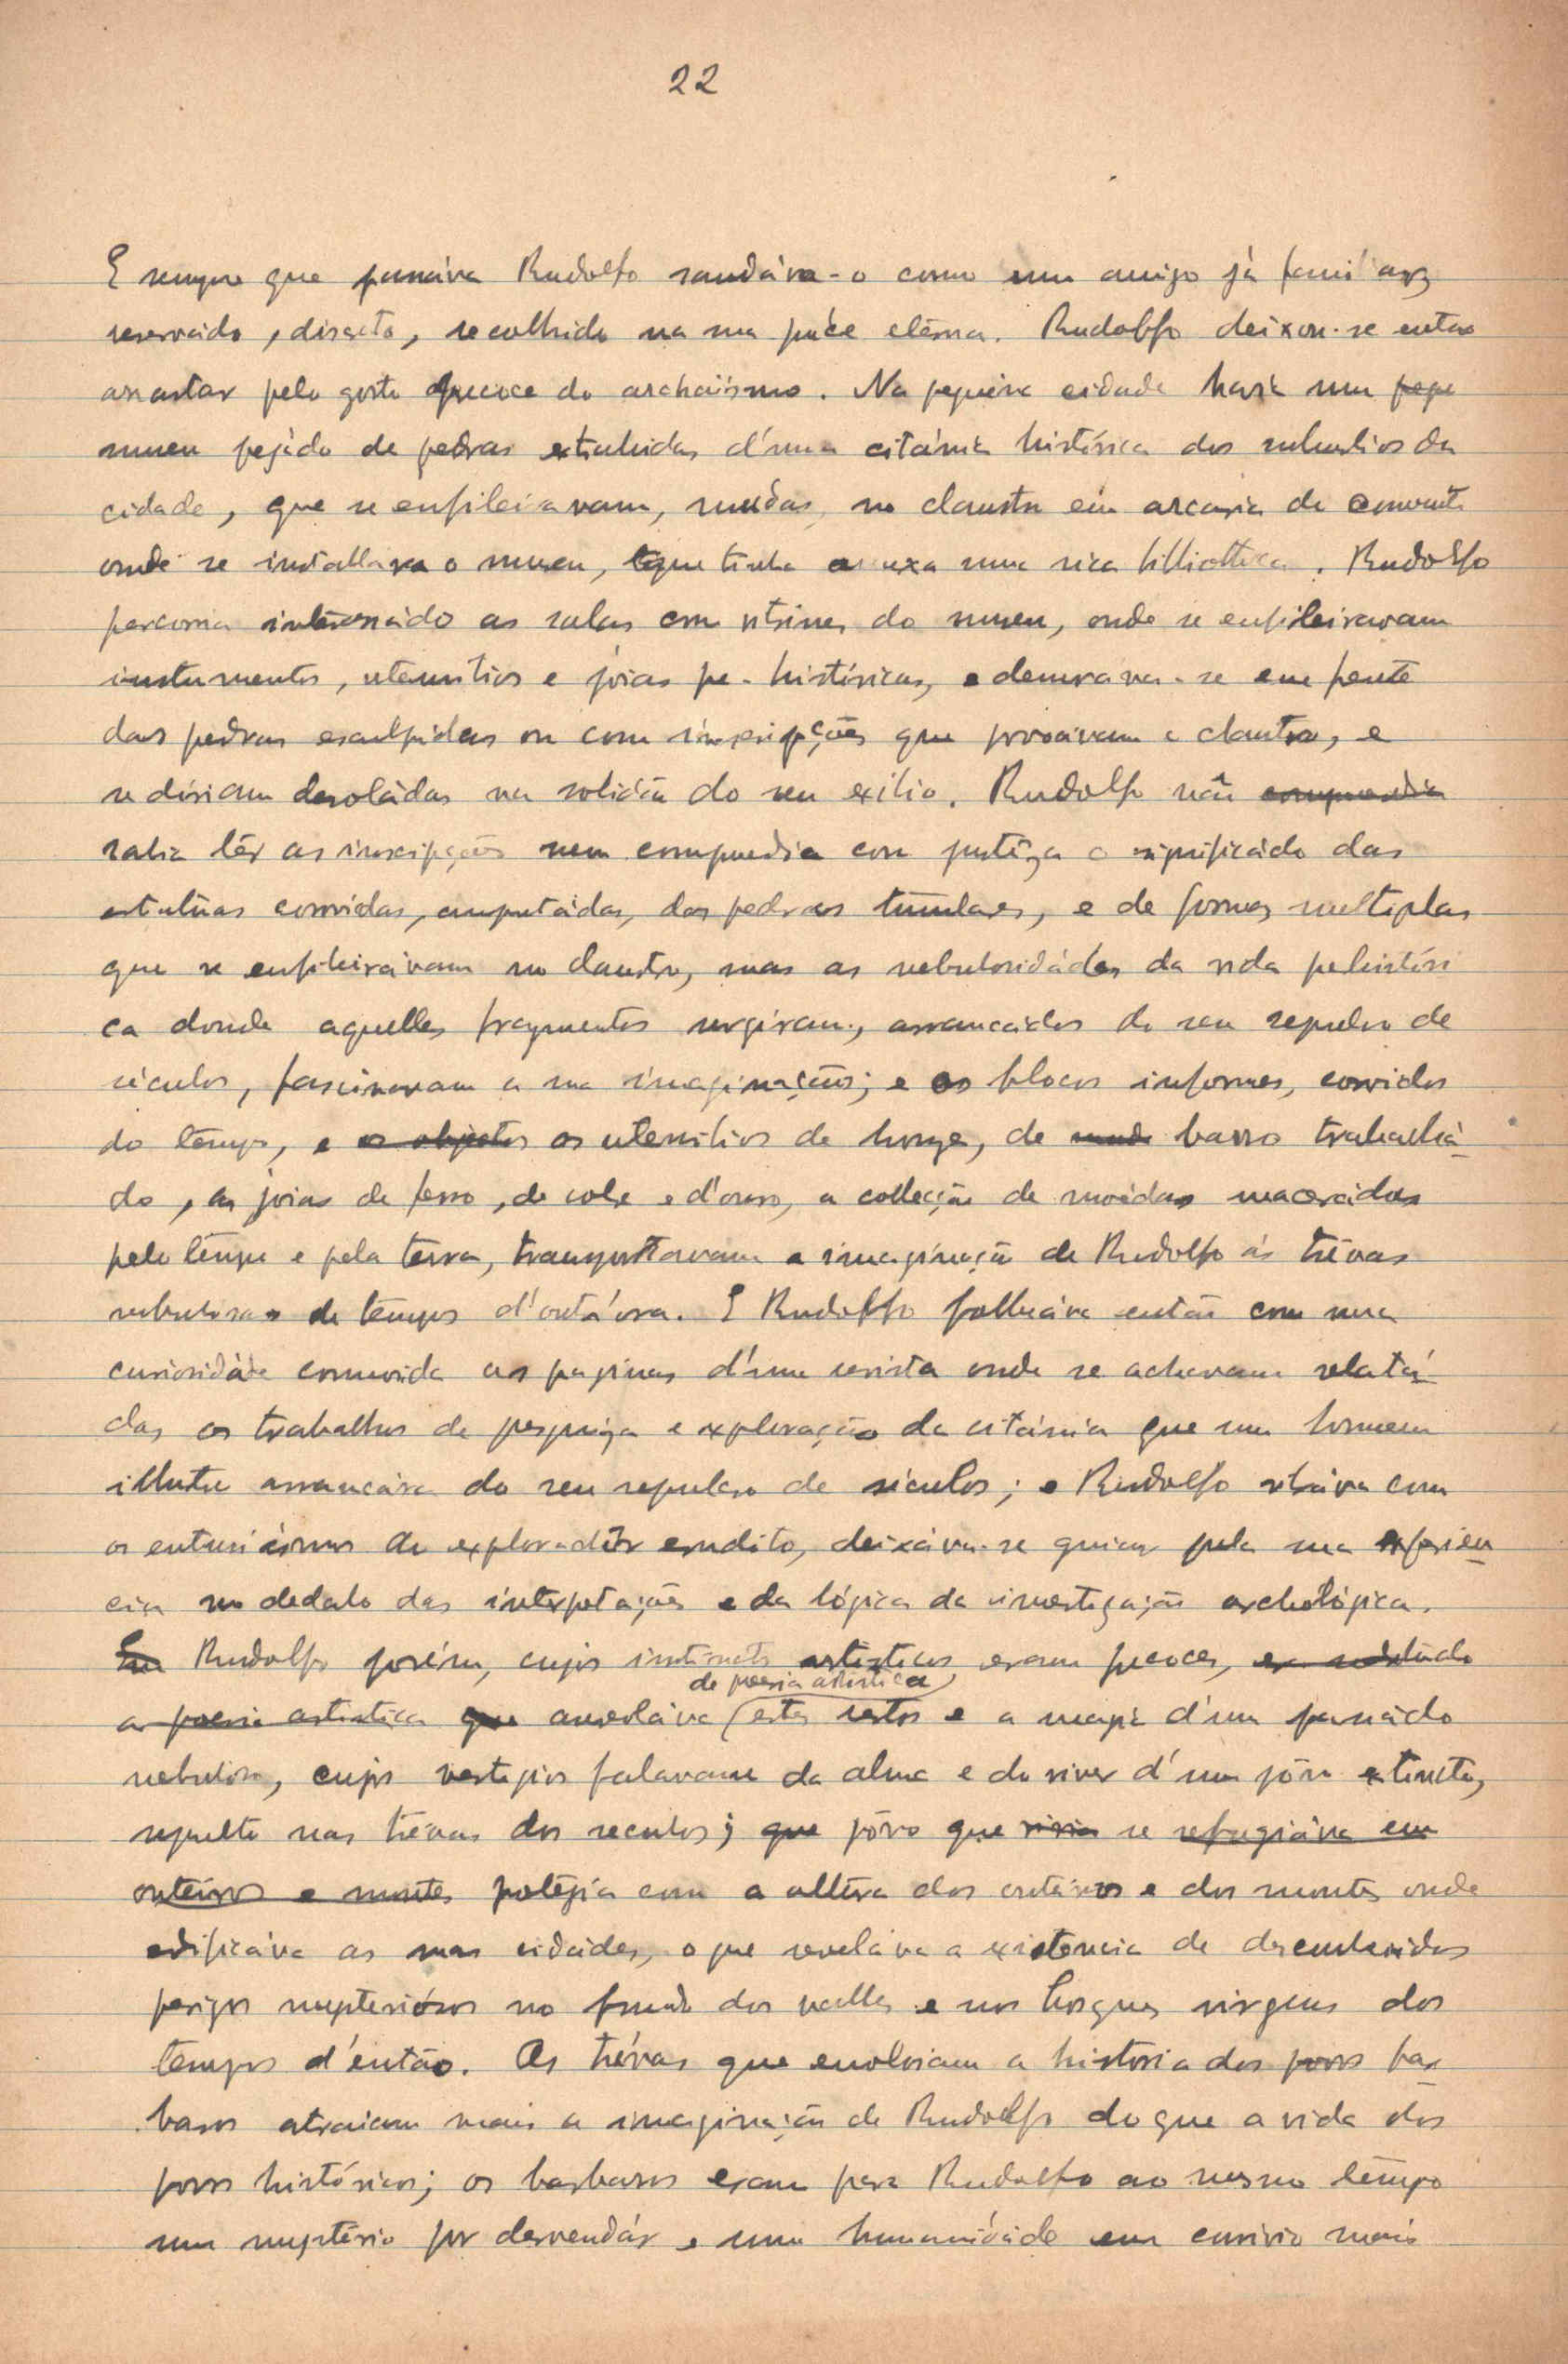 22
E sempre que passáva Rudolfo saudáva-o como um amigo já familiar,
reservádo, discreto, recolhido na sua páce etérna. Rudolfo deixou-se então
arrastar pelo gosto precoce do archaísmo. Na pequena cidade havia um pequ
museu pejádo de pedras extrahidas d'uma citánia histórica dos suburbios da
cidade, que se enfileiravam, mudas, no claustro em arcaria do convento
onde se installara o museu, que tinha annexa uma rica bibliotheca. Rudolfo
percorria interessádo as salas com vitrines do museu, onde se enfileiravam
instrumentos, utensilios e joias pre-históricas, e demorava-se em frente
das pedras esculpidas ou com inscripções que povoávam o claustro, e
se diriam desoládas na solidão do seu exilio. Rudolfo não comprendia
sabia lêr as inscripções nem comprendia com justêza o significádo das
estatuas corroidas, amputádas, das pedras tumulares, e de formas multiplas
que se enfileirávam no claustro, mas as nebulosidádes da vida prehistóri
ca donde aquelles fragmentos surgiram, arrancádos do seu sepulcro de
séculos, fascinavam a sua imaginação; e os blocos informes, corroidos
do tempo, e os objectos os utensilios de bronze, de barro trabalhá-
do, as joias de ferro, de cobre e d'ouro, a collecção de moédas maceradas
pelo tempo e pela terra, transportavam a imaginação de Rudolfo ás trévas
nebulosas de tempos d'outr'ora. E Rudolfo folheáva então com uma
curiosidáde comovida as paginas d'uma revista onde se achavam relatá-
dos os trabalhos de pesquiza e exploração da citánia que um homem
illustre arrancára do seu sepulcro de séculos; e Rudolfo vibráva com
os entusiásmos do explorador erudito, deixáva-se guiar pela sua experien-
cia no dedalo das interpretações e da lógica da investigação archeológica.
Em Rudolfo porém, cujos instinctos artisticos eram precoces,
de poesia artistica
a poesia artistica que aureoláva estes restos e a magia d'um passádo
nebuloso, cujos vestigios falavam da alma e do viver d'um pôvo extincto,
sepulto nas trévas dos seculos; que pôvo que vivia se refugiáva em
outeiros e montes protégia com a altura dos outeiros e dos montes onde
edificáva as suas cidádes, o que reveláva a existencia de desconhecidos
perigos mysteriósos no fundo dos valles e nos bosques virgens dos
tempos d'então. As trévas que envolviam a historia dos povos bar-
baros atraiam mais a imaginação de Rudolfo do que a vida dos
povos históricos; os barbaros eram para Rudolfo ao mesmo tempo
um mystério por desvendár e uma humanidáde em convivio mais